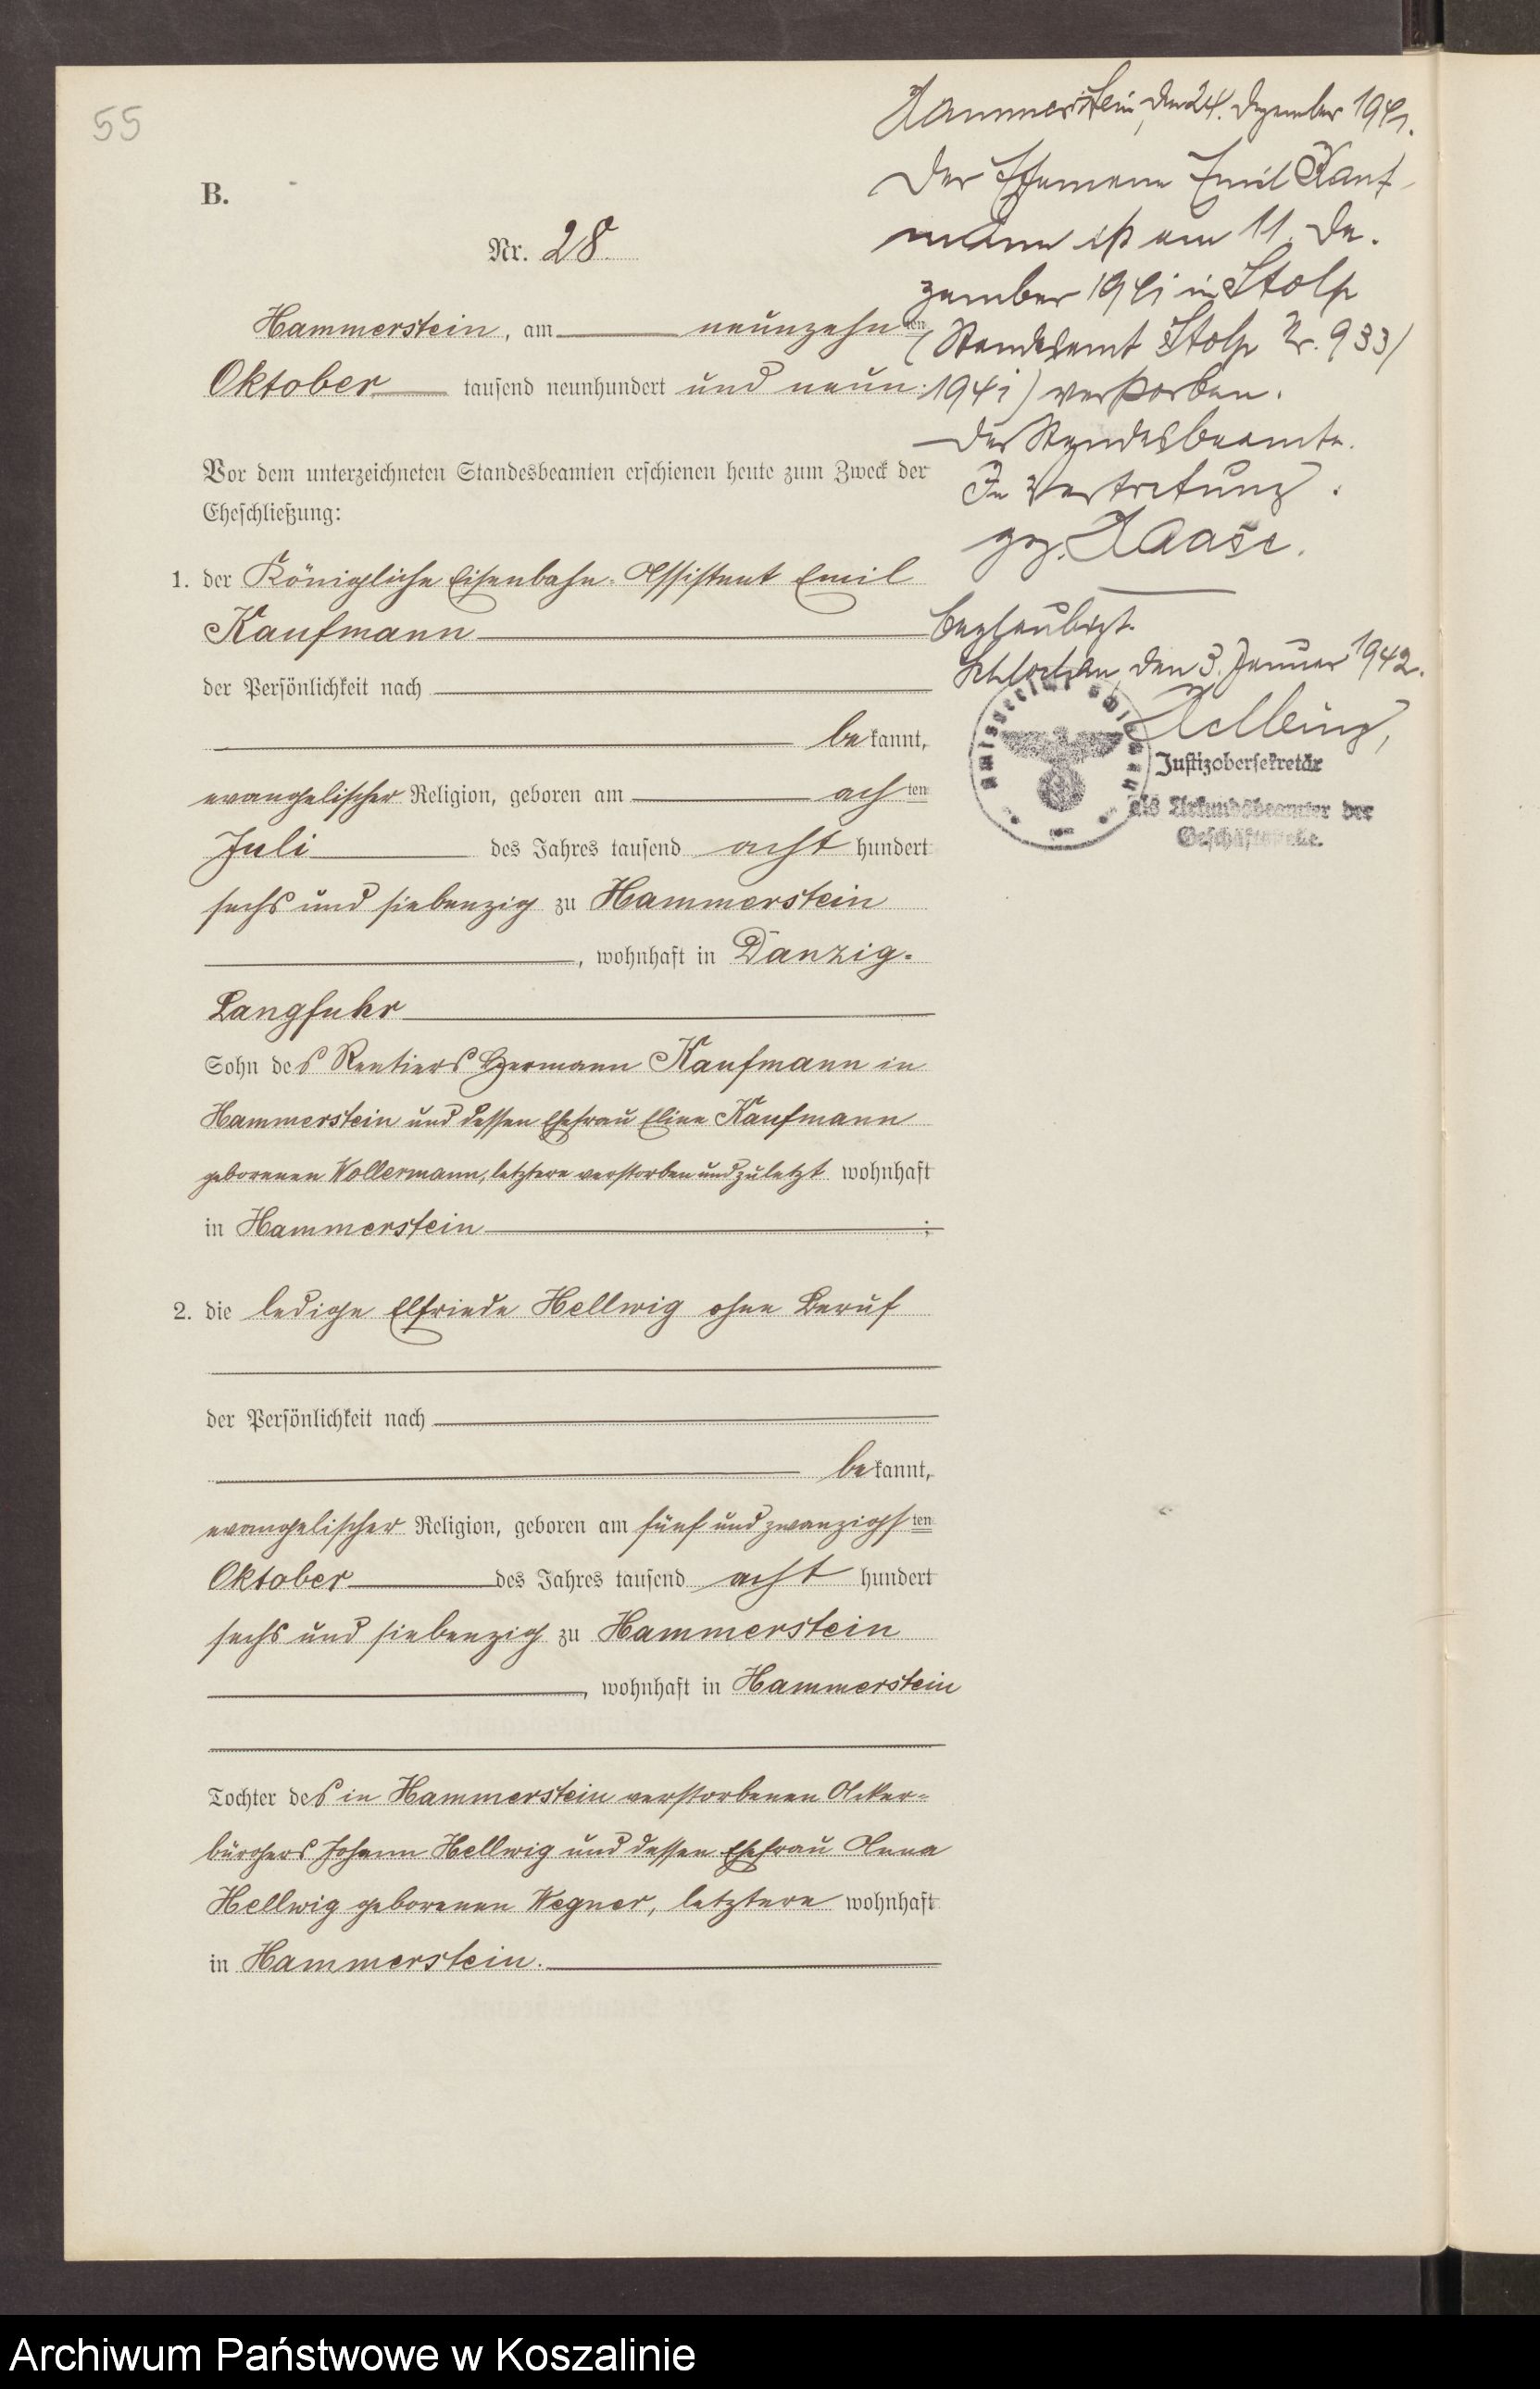 55
B.
Nr. 28.
Hammerstein, am neunzehnten
Oktober tausend neunhundert und neun.
Vor dem unterzeichneten Standesbeamten erschienen heute zum Zweck der
Eheschließung:
1. der Königliche Eisenbahn-Assistent Emil
Kaufmann
der Persönlichkeit nach
bekannt,
evangelischer Religion, geboren am achten
Juli des Jahres tausend acht hundert
sechs und siebenzig zu Hammerstein
, wohnhaft in Danzig-
Langfuhr
Sohn des Rentiers Hermann Kaufmann in
Hammerstein und dessen Ehefrau Eline Kaufmann
geborenen Wollermann, letztere verstorben und zuletzt wohnhaft
in Hammerstein ;
2. die ledige Elfriede Hellwig ohne Beruf
der Persönlichkeit nach
bekannt,
evangelischer Religion, geboren am fünf und zwanzigsten
Oktober des Jahres tausend acht hundert
sechs und siebenzig zu Hammerstein
, wohnhaft in Hammerstein
Tochter des in Hammerstein verstorbenen Acker-
bürgers Johann Hellwig und dessen Ehefrau Anna
Hellwig geborenen Wegner, letztere wohnhaft
in Hammerstein.
Hammerstein, den 24. Dezember 1941.
Der Ehemann Emil Kauf-
mann ist am 11. De-
zember 1941 in Stolp
(Standesamt Stolp Nr. 933/
1941) verstorben.
Der Standesbeamte.
In Vertretung.
gez. Haase.
Beglaubigt.
Schlochau, den 3. Januar 1942.
Justizobersekretär
als Urkundsbeamter der
Geschäftsstelle.
Archiwum Państwowe w Koszalinie